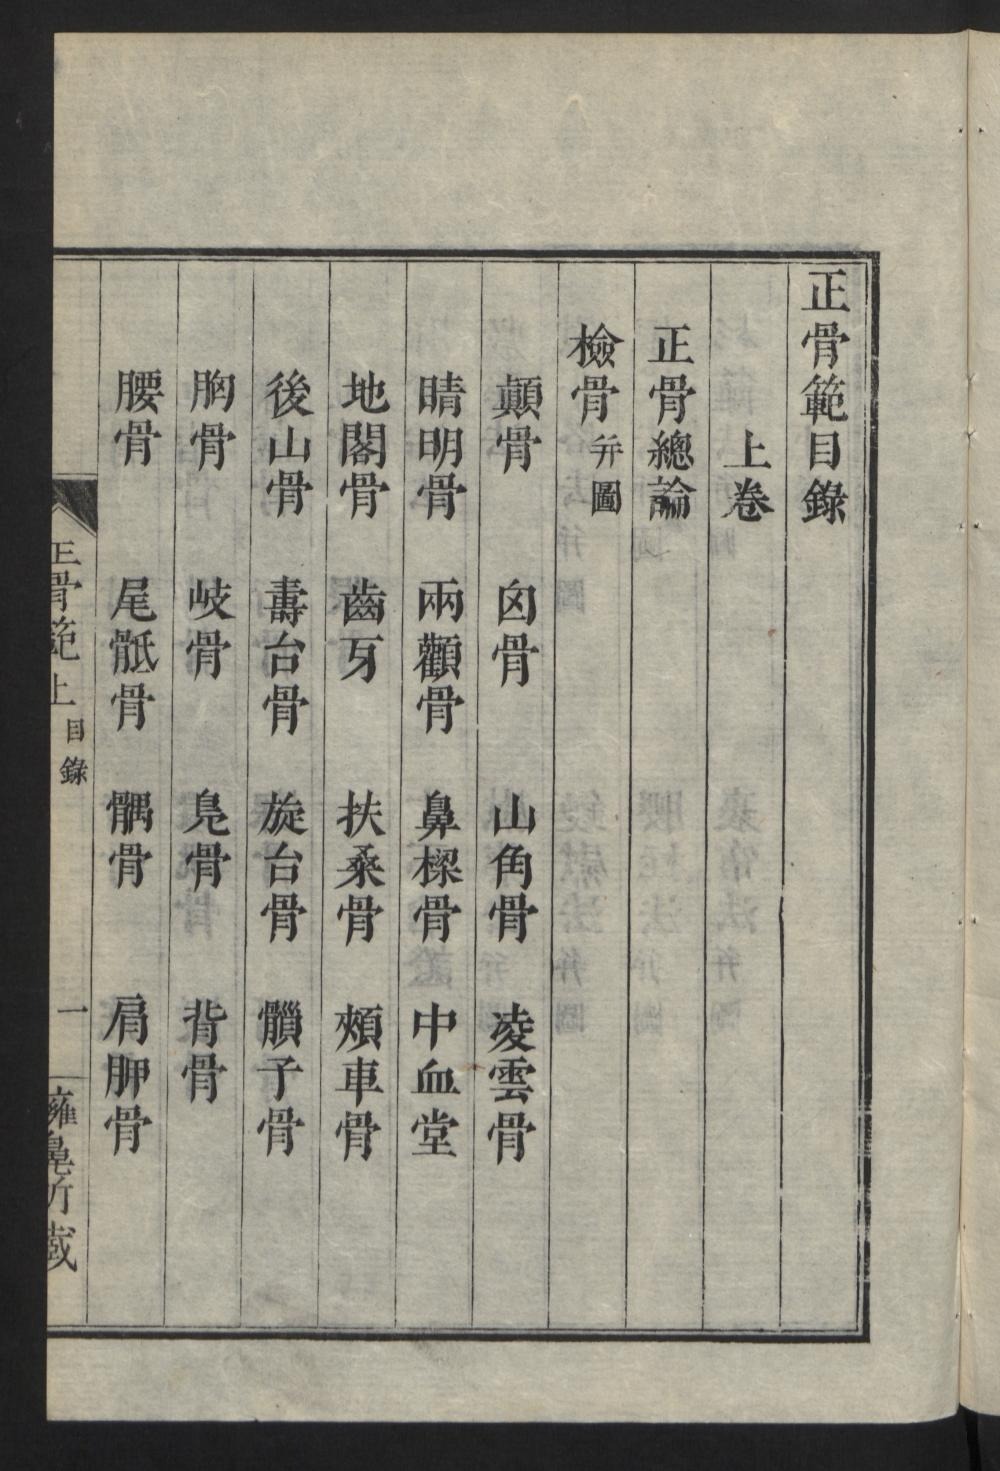 正骨範目錄
上卷
正骨總論
檢骨 并圖
顛骨 囟骨 山角骨 凌雲骨
睛明骨 兩顴骨 鼻樑骨 中血堂
地閣骨 齒牙 扶桑骨 頰車骨
後山骨 壽台骨 旋台骨 䯥子骨
胸骨 岐骨 鳧骨 背骨
腰骨 尾骶骨 髃骨 肩胛骨
正骨範 上 目錄 一